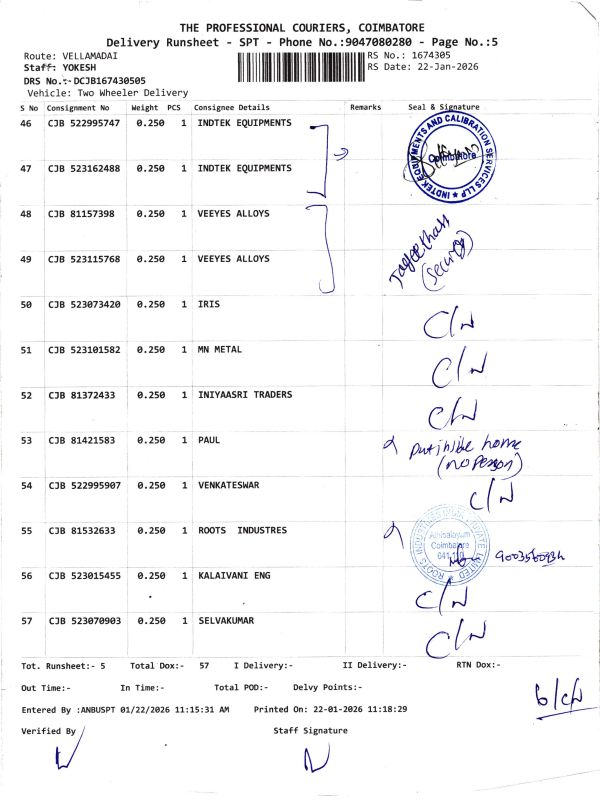 THE PROFESSIONAL COURIERS, COIMBATORE
Delivery Runsheet - SPT - Phone No.:9047080280 - Page No.:5
Route: VELLAMADAI RS No.: 1674305
Staff: YOKESH RS Date: 22-Jan-2026
DRS No.:-DCJB167430505
Vehicle: Two Wheeler Delivery
S No Consignment No Weight PCS Consignee Details Remarks Seal & Signature
46 CJB 522995747 0.250 1 INDTEK EQUIPMENTS
INDTEK EQUIPMENTS AND CALIBRATION SERVICES LLP ★ Coimbatore
47 CJB 523162488 0.250 1 INDTEK EQUIPMENTS
48 CJB 81157398 0.250 1 VEEYES ALLOYS
(Security)
49 CJB 523115768 0.250 1 VEEYES ALLOYS
50 CJB 523073420 0.250 1 IRIS C/N
51 CJB 523101582 0.250 1 MN METAL C/N
52 CJB 81372433 0.250 1 INIYAASRI TRADERS C/N
53 CJB 81421583 0.250 1 PAUL home
(no person)
54 CJB 522995907 0.250 1 VENKATESWAR C/N
55 CJB 81532633 0.250 1 ROOTS INDUSTRES
Coimbatore
56 CJB 523015455 0.250 1 KALAIVANI ENG C/N
57 CJB 523070903 0.250 1 SELVAKUMAR C/N
Tot. Runsheet:- 5 Total Dox:- 57 I Delivery:- II Delivery:- RTN Dox:-
Out Time:- In Time:- Total POD:- Delvy Points:-
6/c/n
Entered By :ANBUSPT 01/22/2026 11:15:31 AM Printed On: 22-01-2026 11:18:29
Verified By Staff Signature